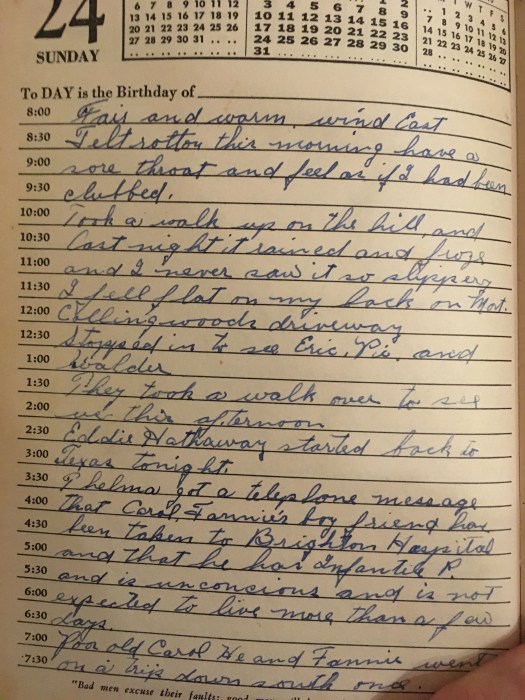 24
6 7 8 9 10 11 12
13 14 15 16 17 18 19
20 21 22 23 24 25 26
27 28 29 30 31 . . . .
3 4 5 6 7 8 9
10 11 12 13 14 15 16
17 18 19 20 21 22 23
24 25 26 27 28 29 30
31
W T F S
. . 1 2 3 4 5 6
7 8 9 10 11 12 13
14 15 16 17 18 19 20
21 22 23 24 25 26 27
28
SUNDAY
To DAY is the Birthday of
8:00 Fair and warm, wind East
8:30 Felt rotton this morning have a
9:00 sore throat and feel as if I had been
9:30 clubbed.
10:00 Took a walk up on the hill, and
10:30 Last night it rained and froze
11:00 and I never saw it so slippery
11:30 I fell flat on my back on Mort.
12:00 Collingwoods driveway
12:30 Stopped in to see Eric, Pie, and
1:00 Walder
1:30 They took a walk over to see
2:00 us this afternoon
2:30 Eddie Hathaway started back to
3:00 Texas tonight.
3:30 Thelma got a telephone message
4:00 that Carol, Fannie's boy friend has
4:30 been taken to Brighton Hospital
5:00 and that he has Infantile P.
5:30 and is unconcious and is not
6:00 expected to live more than a few
6:30 days.
7:00 Poor old Carol He and Fannie went
7:30 on a trip down south once.
"Bad men excuse their faults; good men